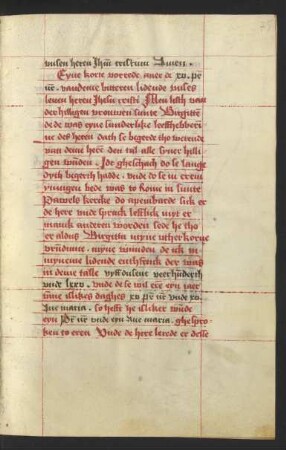 vnsen heren Jhm̄ cristum Amen
Eyne korte vorrede auer de xv. pr̄
nr̄. van deme bitteren lidende vnses
leuen heren Jhesu cristi Men lest van
der hilligen vrouwen sunte Birgitten
de de was eyne sunderlike leefhebber
ne des heren dath se begerde tho wetende
van deme here den tal alle syner hilli
gen wunden. Do gheschach do se lange
dyth begerth hadde. vnde do se in erem
ynnigen bede was to Rome in sunte
Pawels kercke do apenbarde sick er
de here vnde sprack lefflick myt er
manck anderen worden sede he tho
er aldus Birgitta myne vtherkorne
vrundinne. myne wunden de ick in
mynem lidende entfenck der was
in deme talle vyffdusent veerhunderth
vnde lxxv. vnde de se wil eren eyn iaer
vmme illikes daghes xv pr̄ nr̄ vnde xv
Aue maria. so hefft he illiker wunde
eyn Pr̄ nr̄ vnde eyn Aue maria. ghespro
ken to eren Vnde de here lerde er desse